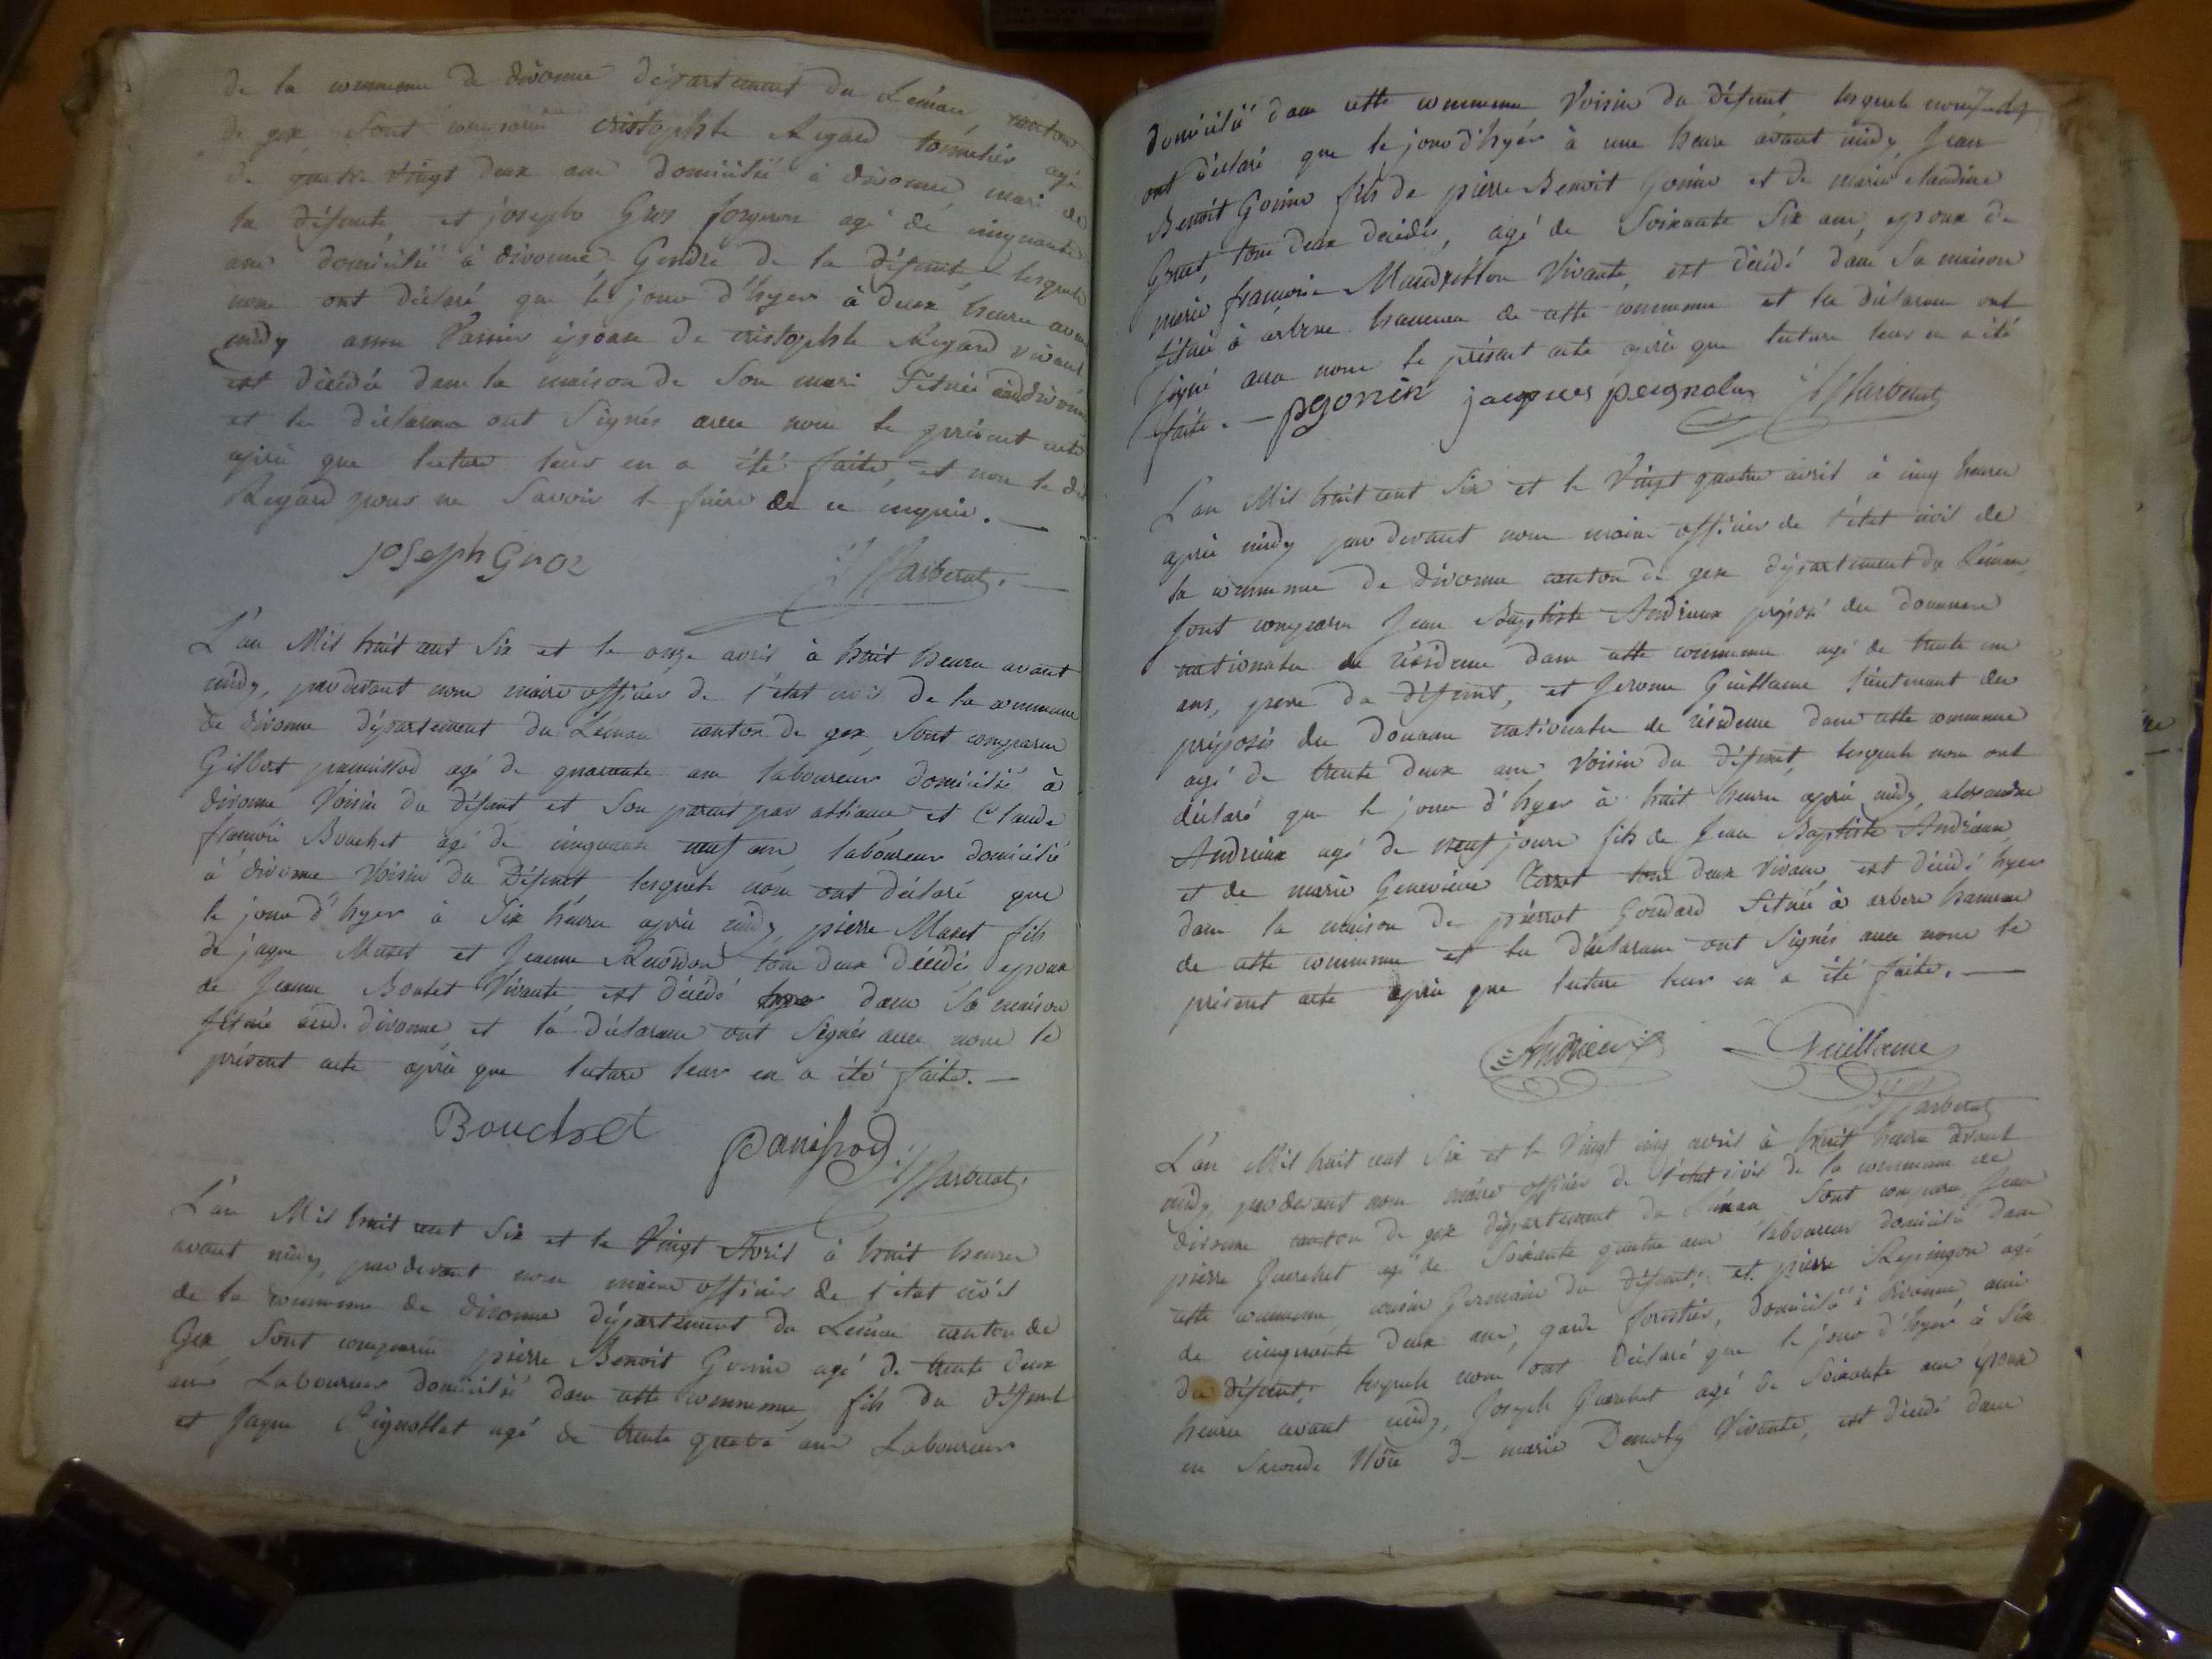 de la commune de divonne département du Léman canton
de gex sont comparus cristophle Regard tonnelier agé
de quatre vingt deux ans domicilié à divonne, mari de
la défunte, et joseph Gros forgeron agé de cinquante
ans domicilié à divonne Gendre de la défunte, lesquels
nous ont déclaré que le jour d'hyer à deux heures avant
midy anne épouse de cristophle Regard vivant
est décédée dans la maison de son mari située aud. divonne
et les déclarans ont signés avec nous le présent acte
après que lecture leur en a été faite, et non le dit
Regard pour ne savoir le faire de ce enquis.
Joseph Groz
L'an Mil huit cent six et le onze avril à huit heures avant
midy, pardevant nous maire officier de l'état civil de la commune
de divonne département du Léman canton de gex, sont comparus
Gilbert panissod agé de quarante ans laboureur domicilié à
divonne Voisin du défunt et son parent par alliance et Claude
françois Bouchet agé de cinquante neuf ans laboureur domicilié
à divonne Voisin du défunt lesquels nous ont déclaré que
le jour d'hyer à six heures après midy pierre Maret fils
de jaque Maret et Jeanne tous deux décédés epoux
de Jeanne Vivante est décédé dans sa maison
située aud. divonne, et les déclarans ont signés avec nous le
présent acte après que lecture leur en a été faite.
Bouchet
Panissod
L'an Mil huit cent six et le Vingt Avril à huit heures
avant midy, pardevant nous maire officier de l'état civil
de la commune de divonne département du Léman canton de
Gex sont comparus pierre Benoit Gonin agé de trente deux
ans Laboureur domicilié dans cette commune, fils du défunt
et Jaque Pignollet agé de trente quatre ans Laboureur
domicilié dans cette commune Voisin du défunt lesquels nous
ont déclaré que le jour d'hyér à une heure avant midy Jean
Benoit Gonin fils de pierre Benoit Gonin et de marie claudine
tous deux décédés, agé de soixante six ans, epoux de
marie françoise Vivante, est décédé dans sa maison
située à arbere hameau de cette commune et les déclarans ont
signé avec nous le présent acte après que lecture leur en a été
faite. pgonin jacques
L'an Mil huit cent six et le Vingt quatre avril à cinq heures
après midy pardevant nous maire officier de l'état civil de
la commune de divonne canton de gex département du Léman,
sont comparus Jean Baptiste Andrieux préposé des douanes
nationales de résidence dans cette commune agé de trente un
ans, pere du défunt, et Jerome Guillaume lieutenant des
préposés des Douanes nationales de résidence dans cette commune
agé de trente deux ans Voisin du défunt, lesquels nous ont
déclaré que le jour d'hyer à huit heures après midy, alexandre
Andrieux agé de neuf jours fils de Jean Baptiste Andrieux
et de marie Geneviève tous deux Vivans, est décédé hyer
dans la maison de pierrot Goudard située à arbere hameau
de cette commune et les déclarans ont signés avec nous le
présent acte après que lecture leur en a été faite.
Andrieux Guillaume
L'an Mil huit cent six et le Vingt cinq avril à huit heures avant
midy, pardevant nous maire officier de l'état civil de la commune de
divonne canton de gex département du Léman sont comparus Jean
pierre agé de soixante quatre ans laboureur domicilié dans
cette commune cousin Germain du défunt, et pierre agé
de cinquante deux ans, garde forestier, domicilié à divonne, ami
du défunt, lesquels nous ont déclaré que le jour d'hyér à six
heures avant midy, Joseph agé de soixante ans epoux
en seconde de marie Vivante, est décédé dans